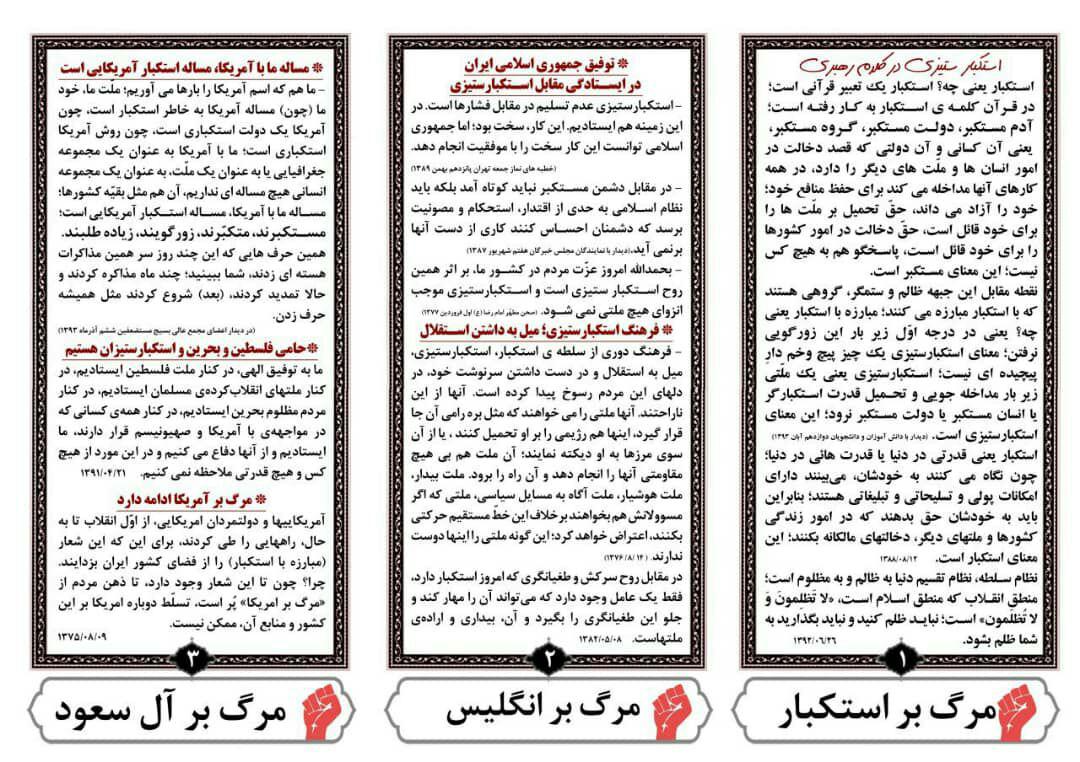 استکبار ستیزی در کلام رهبری
استکبار یعنی چه؟ استکبار یک تعبیر قرآنی است؛
در قرآن کلمه ی استکبار به کار رفته است؛
آدم مستکبر، دولت مستکبر، گروه مستکبر،
یعنی آن کسانی و آن دولتی که قصد دخالت در
امور انسان ها و ملّت های دیگر را دارد، در همه
کارهای آنها مداخله می کند برای حفظ منافع خود؛
خود را آزاد می داند، حقّ تحمیل بر ملّت ها را
برای خود قائل است، حقّ دخالت در امور کشورها
را برای خود قائل است، پاسخگو هم به هیچ کس
نیست؛ این معنای مستکبر است.
نقطه مقابل این جبهه ظالم و ستمگر، گروهی هستند
که با استکبار مبارزه می کنند؛ مبارزه با استکبار یعنی
چه؟ یعنی در درجه اوّل زیر بار این زورگویی
نرفتن؛ معنای استکبارستیزی یک چیز پیچ وخم دارِ
پیچیده ای نیست؛ استکبارستیزی یعنی یک ملّتی
زیر بار مداخله جویی و تحمیل قدرت استکبارگر
یا انسان مستکبر یا دولت مستکبر نرود؛ این معنای
استکبارستیزی است. (دیدار با دانش آموزان و دانشجویان دوازدهم آبان ۱۳۹۳)
استکبار یعنی قدرتی در دنیا یا قدرت هائی در دنیا؛
چون نگاه می کنند به خودشان، می‌بینند دارای
امکانات پولی و تسلیحاتی و تبلیغاتی هستند؛ بنابراین
باید به خودشان حق بدهند که در امور زندگی
کشورها و ملتهای دیگر، دخالتهای مالکانه بکنند؛ این
معنای استکبار است. ۱۳۸۸/۰۸/۱۲
نظام سلطه، نظام تقسیم دنیا به ظالم و به مظلوم است؛
منطقِ انقلاب که منطق اسلام است، «لا تَظلِمونَ وَ
لا تُظلَمون» است؛ نباید ظلم کنید و نباید بگذارید به
شما ظلم بشود. ۱۳۹۲/۰۶/۲۶
۱
مرگ بر استکبار
※ توفیق جمهوری اسلامی ایران
در ایستادگی مقابل استکبارستیزی
- استکبارستیزی عدم تسلیم در مقابل فشارها است. در
این زمینه هم ایستادیم. این کار، سخت بود؛ اما جمهوری
اسلامی توانست این کار سخت را با موفقیت انجام دهد.
(خطبه های نماز جمعه تهران پانزدهم بهمن ۱۳۸۹)
- در مقابل دشمن مستکبر نباید کوتاه آمد بلکه باید
نظام اسلامی به حدی از اقتدار، استحکام و مصونیت
برسد که دشمنان احساس کنند کاری از دست آنها
برنمی آید.(دیدار با نمایندگان مجلس خبرگان هفتم شهریور ۱۳۸۷)
- بحمدالله امروز عزّت مردم در کشور ما، بر اثر همین
روح استکبار ستیزی است و استکبارستیزی موجب
انزوای هیچ ملتی نمی شود. (صحن مطهر امام رضا (ع) اول فروردین ۱۳۷۷)
※ فرهنگ استکبارستیزی؛ میل به داشتن استقلال
- فرهنگ دوری از سلطه ی استکبار، استکبارستیزی،
میل به استقلال و در دست داشتن سرنوشت خود، در
دلهای این مردم رسوخ پیدا کرده است. آنها از این
ناراحتند. آنها ملتی را می خواهند که مثل بره رامی آن جا
قرار گیرد، اینها هم رژیمی را بر او تحمیل کنند ، یا از آن
سوی مرزها به او دیکته نمایند؛ آن ملت هم بی هیچ
مقاومتی آنها را انجام دهد و آن راه را برود. ملت بیدار،
ملت هوشیار، ملت آگاه به مسایل سیاسی، ملتی که اگر
مسوولانش هم بخواهند برخلاف این خطّ مستقیم حرکتی
بکنند، اعتراض خواهد کرد؛ این گونه ملتی را اینها دوست
ندارند. (۱۳۷۶/۸/۱۴)
در مقابل روح سرکش و طغیانگری که امروز استکبار دارد،
فقط یک عامل وجود دارد که می‌تواند آن را مهار کند و
جلو این طغیانگری را بگیرد و آن، بیداری و اراده‌ی
ملتهاست. ۱۳۸۲/۰۵/۰۸
۲
مرگ بر انگلیس
※ مساله ما با آمریکا، مساله استکبار آمریکایی است
- ما هم که اسم آمریکا را بارها می آوریم؛ ملت ما، خود
ما (چون) مساله آمریکا به خاطر استکبار است، چون
آمریکا یک دولت استکباری است، چون روش آمریکا
استکباری است؛ ما با آمریکا به عنوان یک مجموعه
جغرافیایی یا به عنوان یک ملّت، به عنوان یک مجموعه
انسانی هیچ مساله ای نداریم، آن هم مثل بقیّه کشورها؛
مساله ما با آمریکا، مساله استکبار آمریکایی است؛
مستکبرند، متکبّرند، زورگویند، زیاده طلبند.
همین حرف هایی که این چند روز سر همین مذاکرات
هسته ای زدند، شما ببینید؛ چند ماه مذاکره کردند و
حالا تمدید کردند، (بعد) شروع کردند مثل همیشه
حرف زدن.
(در دیدار اعضای مجمع عالی بسیج مستضعفین ششم آذرماه ۱۳۹۳)
※حامی فلسطین و بحرین و استکبارستیزان هستیم
ما به توفیق الهی، در کنار ملت فلسطین ایستادیم، در
کنار ملتهای انقلاب‌کرده‌ی مسلمان ایستادیم، در کنار
مردم مظلوم بحرین ایستادیم، در کنار همه‌ی کسانی که
در مواجهه‌ی با آمریکا و صهیونیسم قرار دارند، ما
ایستادیم و از آنها دفاع می کنیم و در این مورد از هیچ
کس و هیچ قدرتی ملاحظه نمی کنیم. ۱۳۹۱/۰۴/۲۱
※ مرگ بر آمریکا ادامه دارد
آمریکاییها و دولتمردان امریکایی، از اوّل انقلاب تا به
حال، راههایی را طی کردند، برای این که این شعار
(مبارزه با استکبار) را از فضای کشور ایران بزدایند.
چرا؟ چون تا این شعار وجود دارد، تا ذهن مردم از
«مرگ بر امریکا» پُر است، تسلّط دوباره امریکا بر این
کشور و منابع آن، ممکن نیست.
۱۳۷۵/۰۸/۰۹
۳
مرگ بر آل سعود